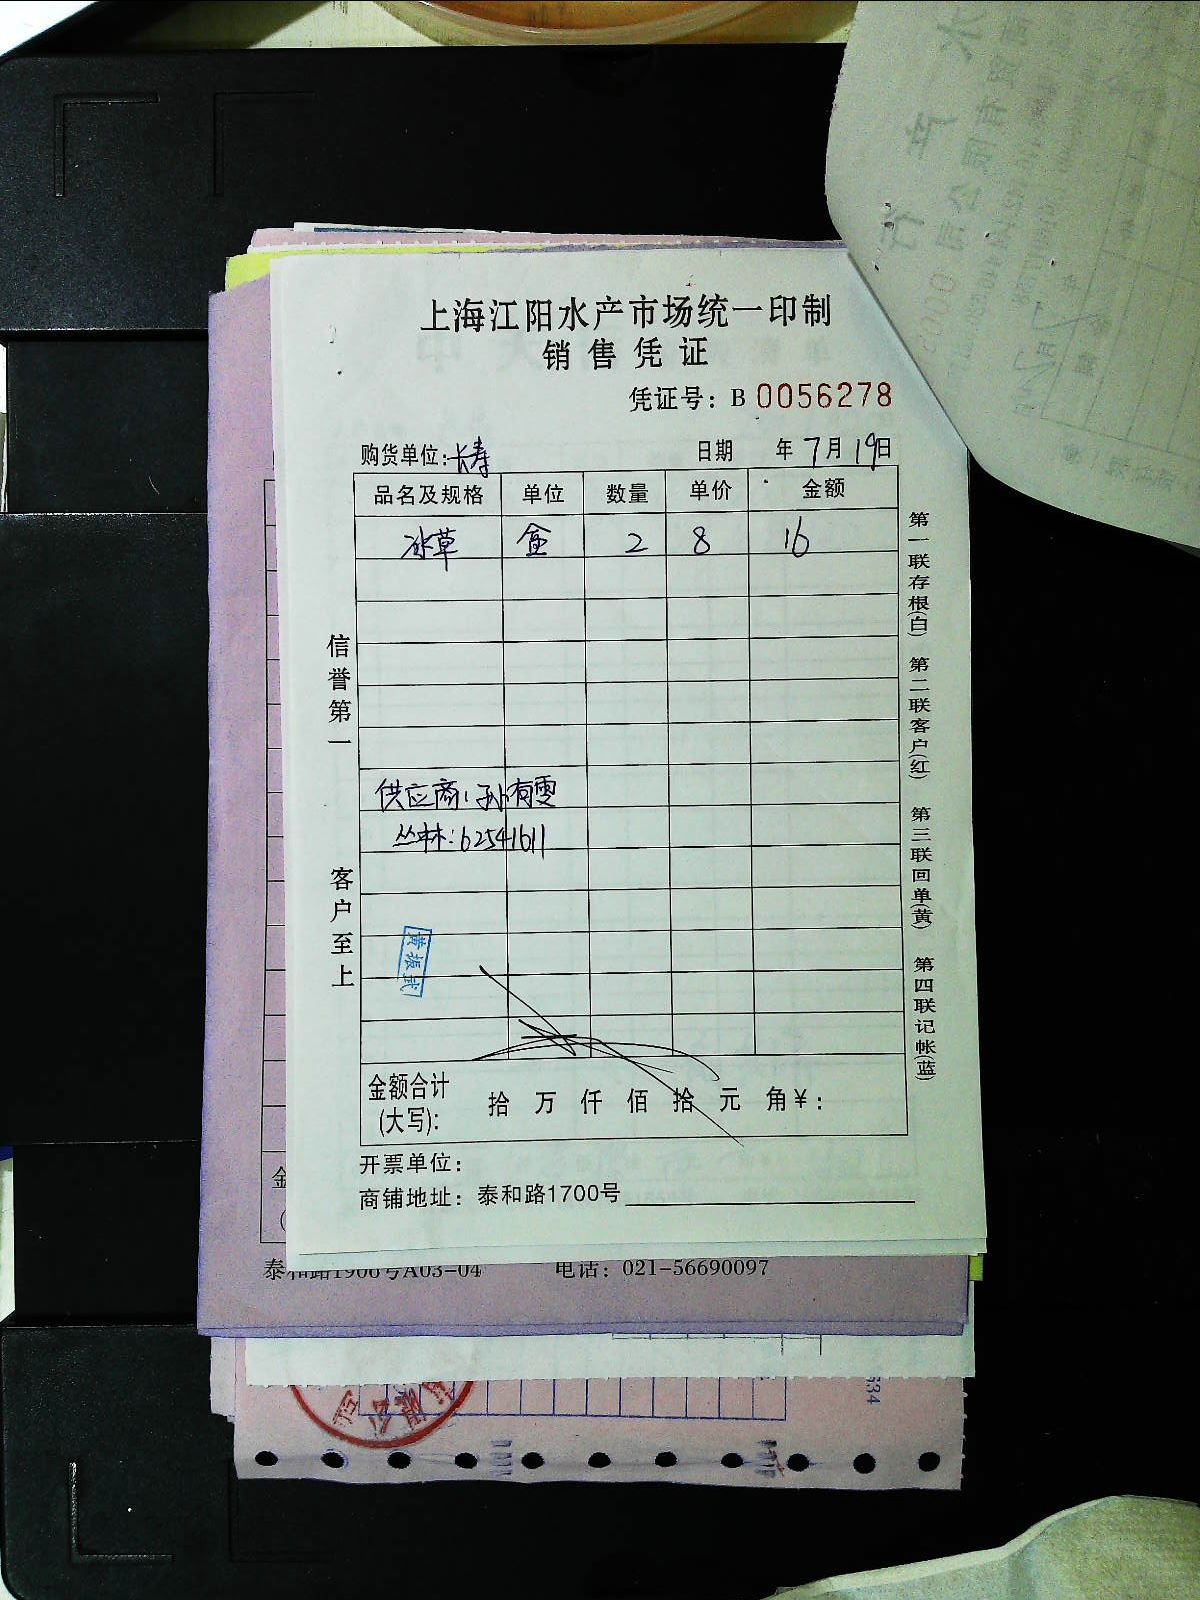 上海江阳水产市场统一印制
销售凭证
凭证号：B 0056278
购货单位：长寿 日期 年7月19日
品名及规格 单位 数量 单价 金额
冰草 盒 2 8 16
供应商：孙有雯
丛林：62541611
黄振武
金额合计(大写)： 拾 万 仟 佰 拾 元 角¥：
开票单位：
商铺地址：泰和路1700号
信誉第一 客户至上
第一联存根(白) 第二联客户(红) 第三联回单(黄) 第四联记帐(蓝)
金
泰和路1906号A03-04 电话：021-56690097